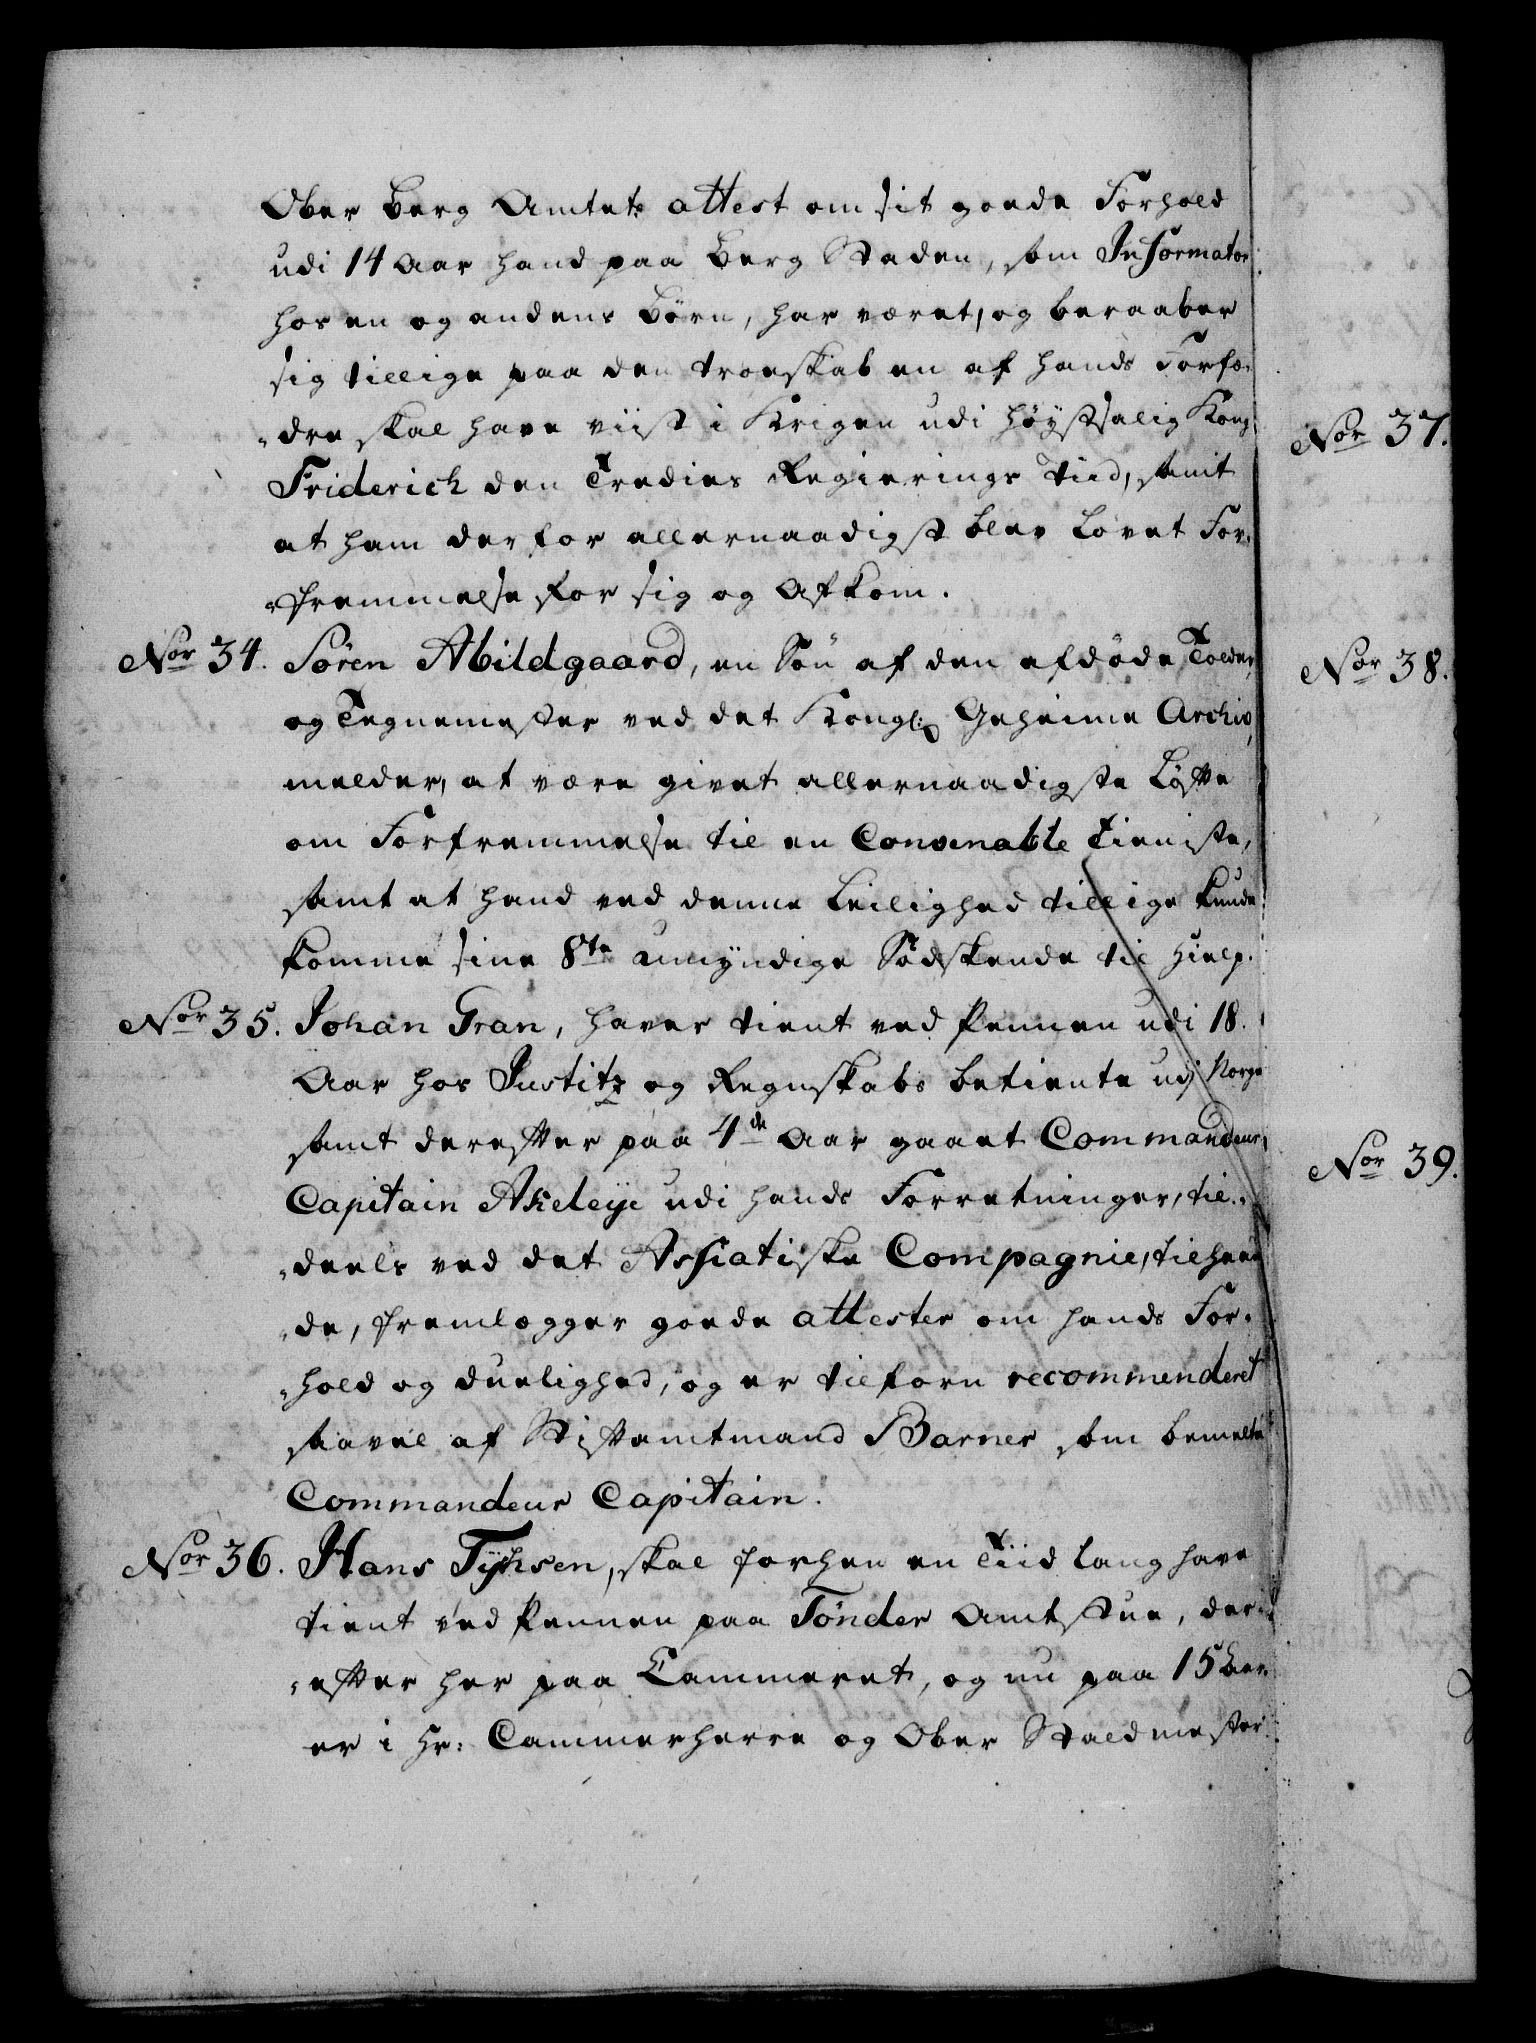 Ober Berg Amtets attest om sit goede Forhold
udi 14 Aar hand paa Berg Staden, som Informator
hos en og andens Börn, har været, og beraaber
sig tillige paa den troeskab en af hands Forfæ-
-dre skal have viist i Krigen udi höystsalig Kong
Friderich den Tredies Regierings Tiid, samt
at ham derfor allernaadigst blev lovet For-
-fremmelse for sig og Afkom.
Nor 34. Sören Abildgaard, en Sön af den afdöde Tolder,
og Tegnemester ved det Kongl: Geheime Archiv,
melder, at være givet allernaadigste Löfte
om Forfremmelse til en Convenable Tieniste,
samt at hand ved denne Leilighed tillige kunde
komme sine 8te umÿndige Södskende til Hielp.
Nor 35. Johan Gran, haver tient ved Pennen udi 18.
Aar hos Justitz og Regnskabs betiente udj Norge
samt derefter paa 4de Aar gaaet Commandeur
Capitain Akeleÿe udi hands Forretninger, til-
-deels ved det Assiatiske Compagnie, tilhaan
-de, fremlegger goede attester om hands For-
-hold og duelighed, og er tilforn recommenderet
saavel af Stiftamtmand Barner som bemelte
Commandeur Capitain.
Nor 36. Hans Tÿchsen, skal forhen en Tiid lang have
tient ved Pennen paa Tönder Amtstue, der-
-efter her paa Cammeret, og nu paa 15 Aar
er i Hr: Cammerherre og Ober Staldmester
Nor 37.
Nor 38.
Nor 39.